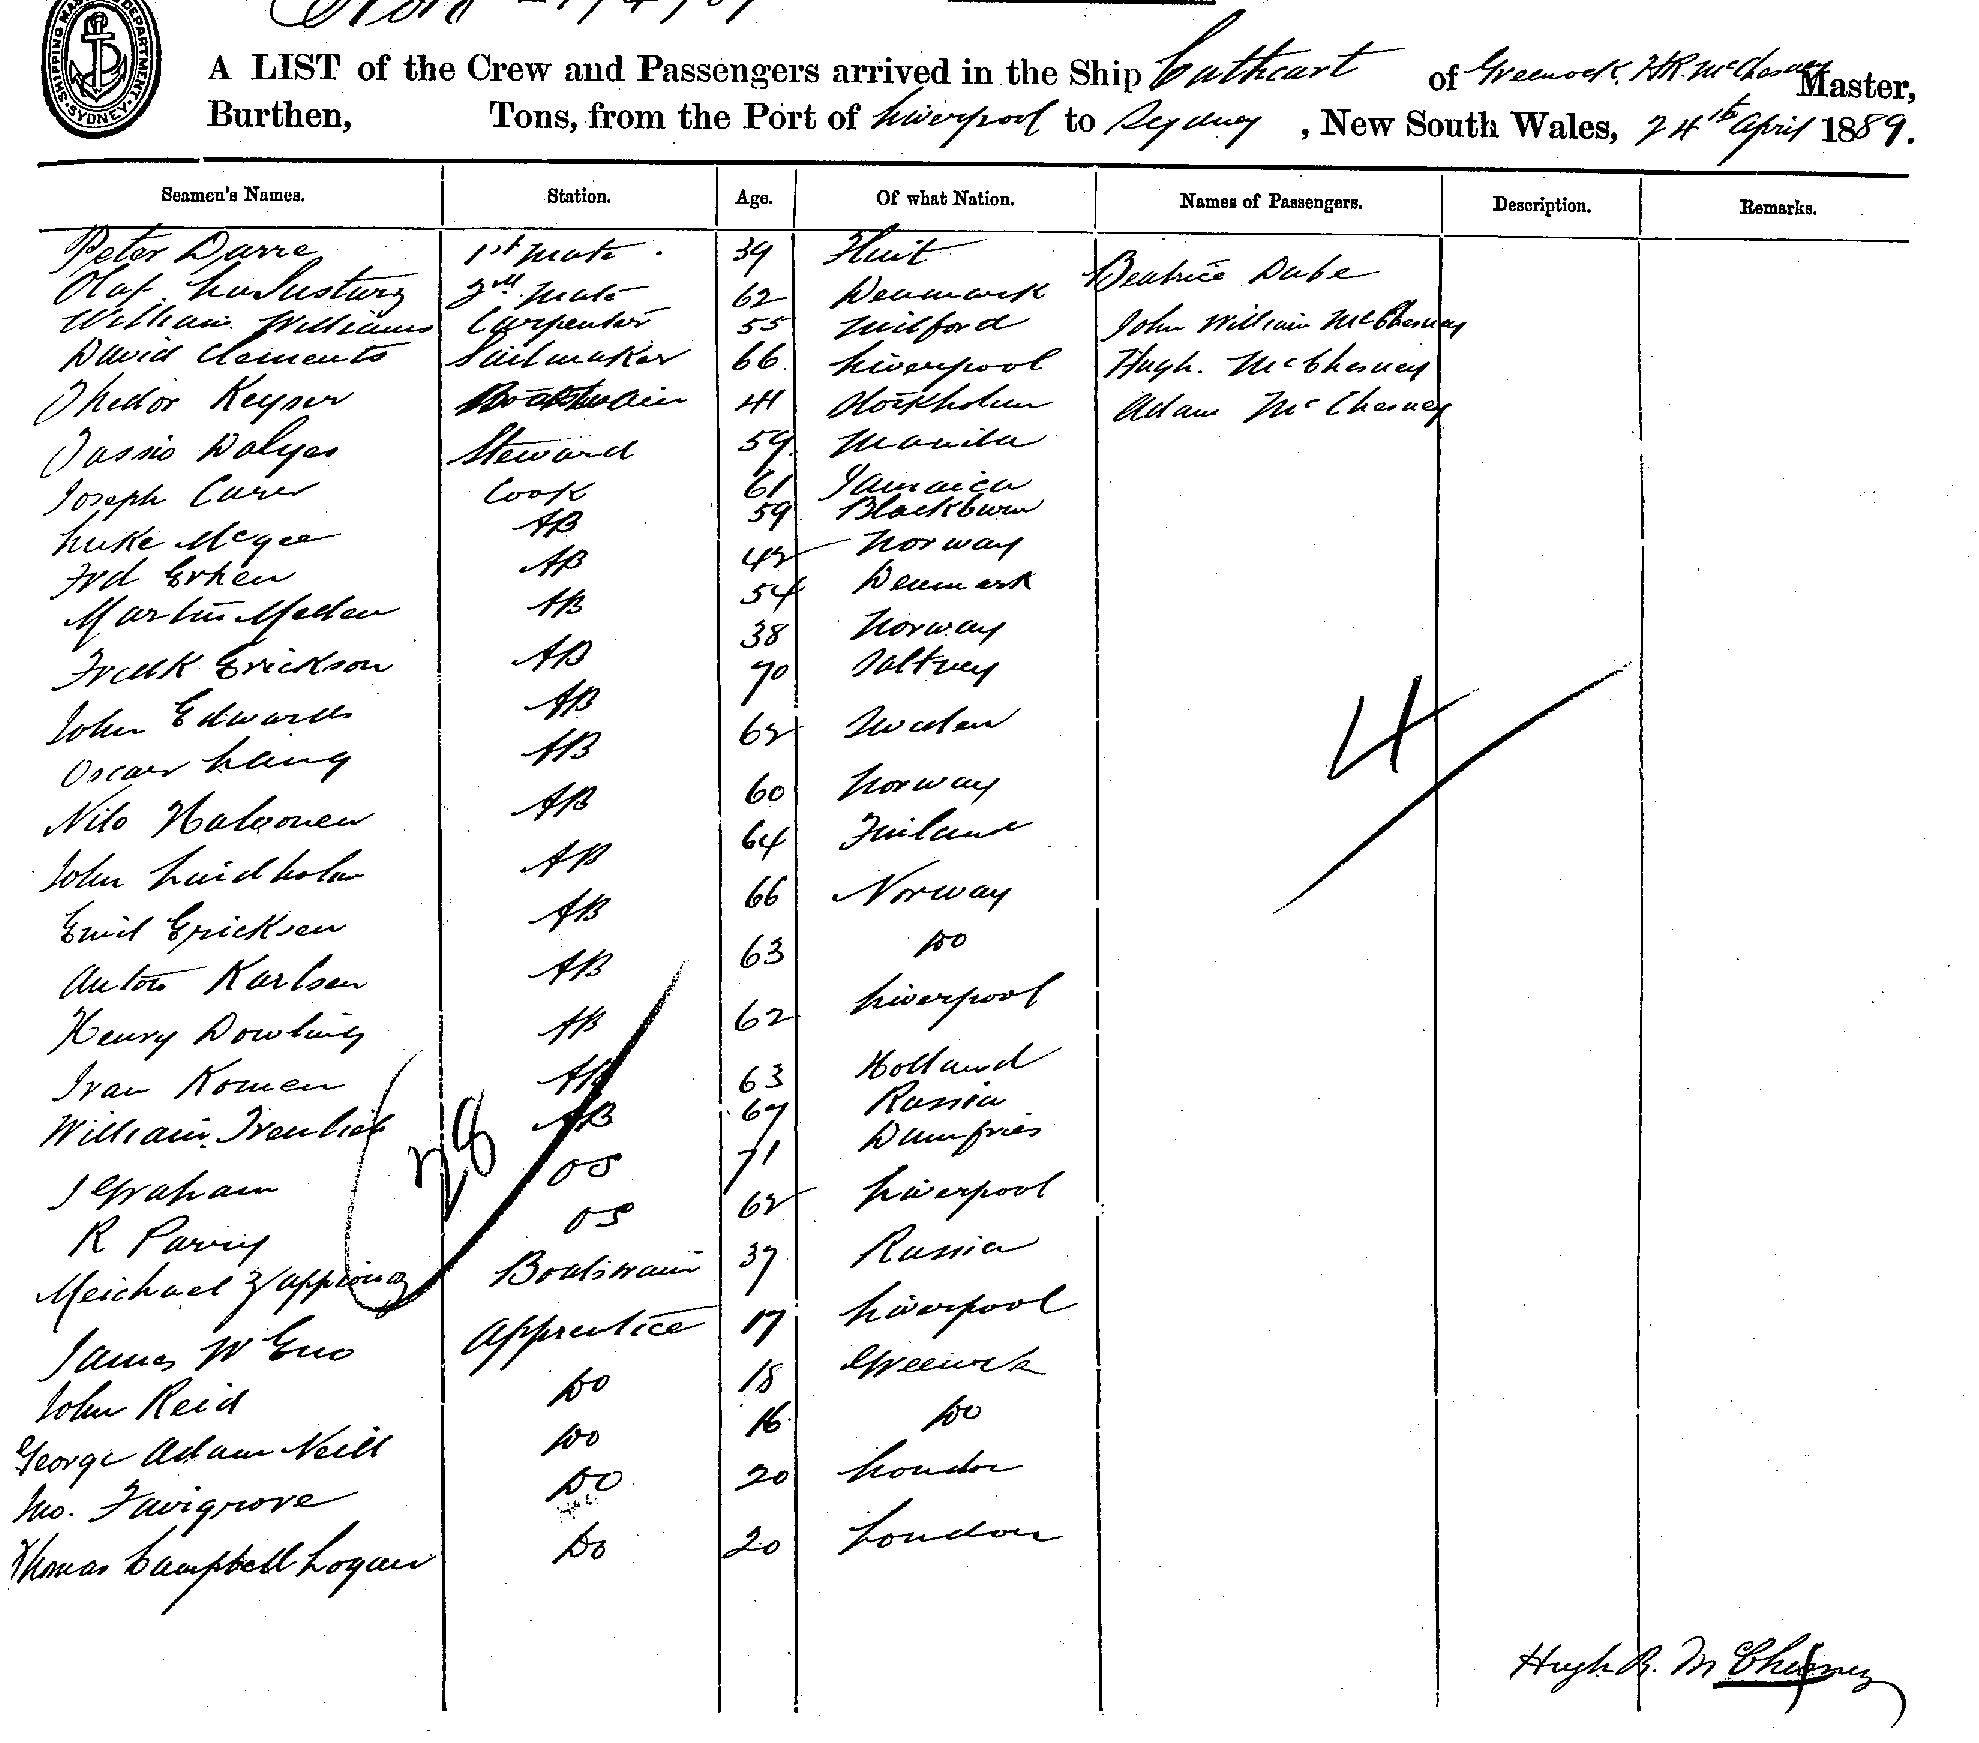 SHIPPING MASTER'S DEPARTMENT SYDNEY
A LIST of the Crew and Passengers arrived in the Ship Cathcart of Greenock, H.R. McChesney Master,
Burthen, Tons, from the Port of Liverpool to Sydney, New South Wales, 24th April 1889.
Seamen's Names. Station. Age. Of what Nation. Names of Passengers. Description. Remarks.
Peter 1st Mate 39 Flint
Olaf 2nd Mate 62 Denmark Beatrice Dabe
William Williams Carpenter 55 Milford John William McChesney
David Clements Sailmaker 66 Liverpool Hugh. McChesney
Thedor Keyser Boatswain 41 Stockholm Adam McChesney
Dalyas Steward 59 Manila
Joseph Carer Cook 61 Jamaica
Luke McGee AB 59 Blackburn
Frd Erken AB 42 Norway
Martin Meden AB 54 Denmark
Fredk Erickson AB 38 Norway
John Edwards AB 70 Saltney
Oscar Lang AB 62 Sweden
Nilo Halconen AB 60 Norway
John Lindholm AB 64 Finland
Emil Ericksen AB 66 Norway
Anton Karlsen AB 63 Do
Henry Dowling AB 62 Liverpool
Ivan Komen AB 63 Holland
William AB 67 Russia
J Graham OS 71 Dumfries
R Parry OS 62 Liverpool
Meichael Boatswain 37 Russia
James W Eno Apprentice 17 Liverpool
John Reid Do 18 Greenock
George Adam Neill Do 16 Do
Jno. Fairgrove Do 20 London
Thomas Campbell Logan Do 20 London
28
4
Hugh R. McChesney